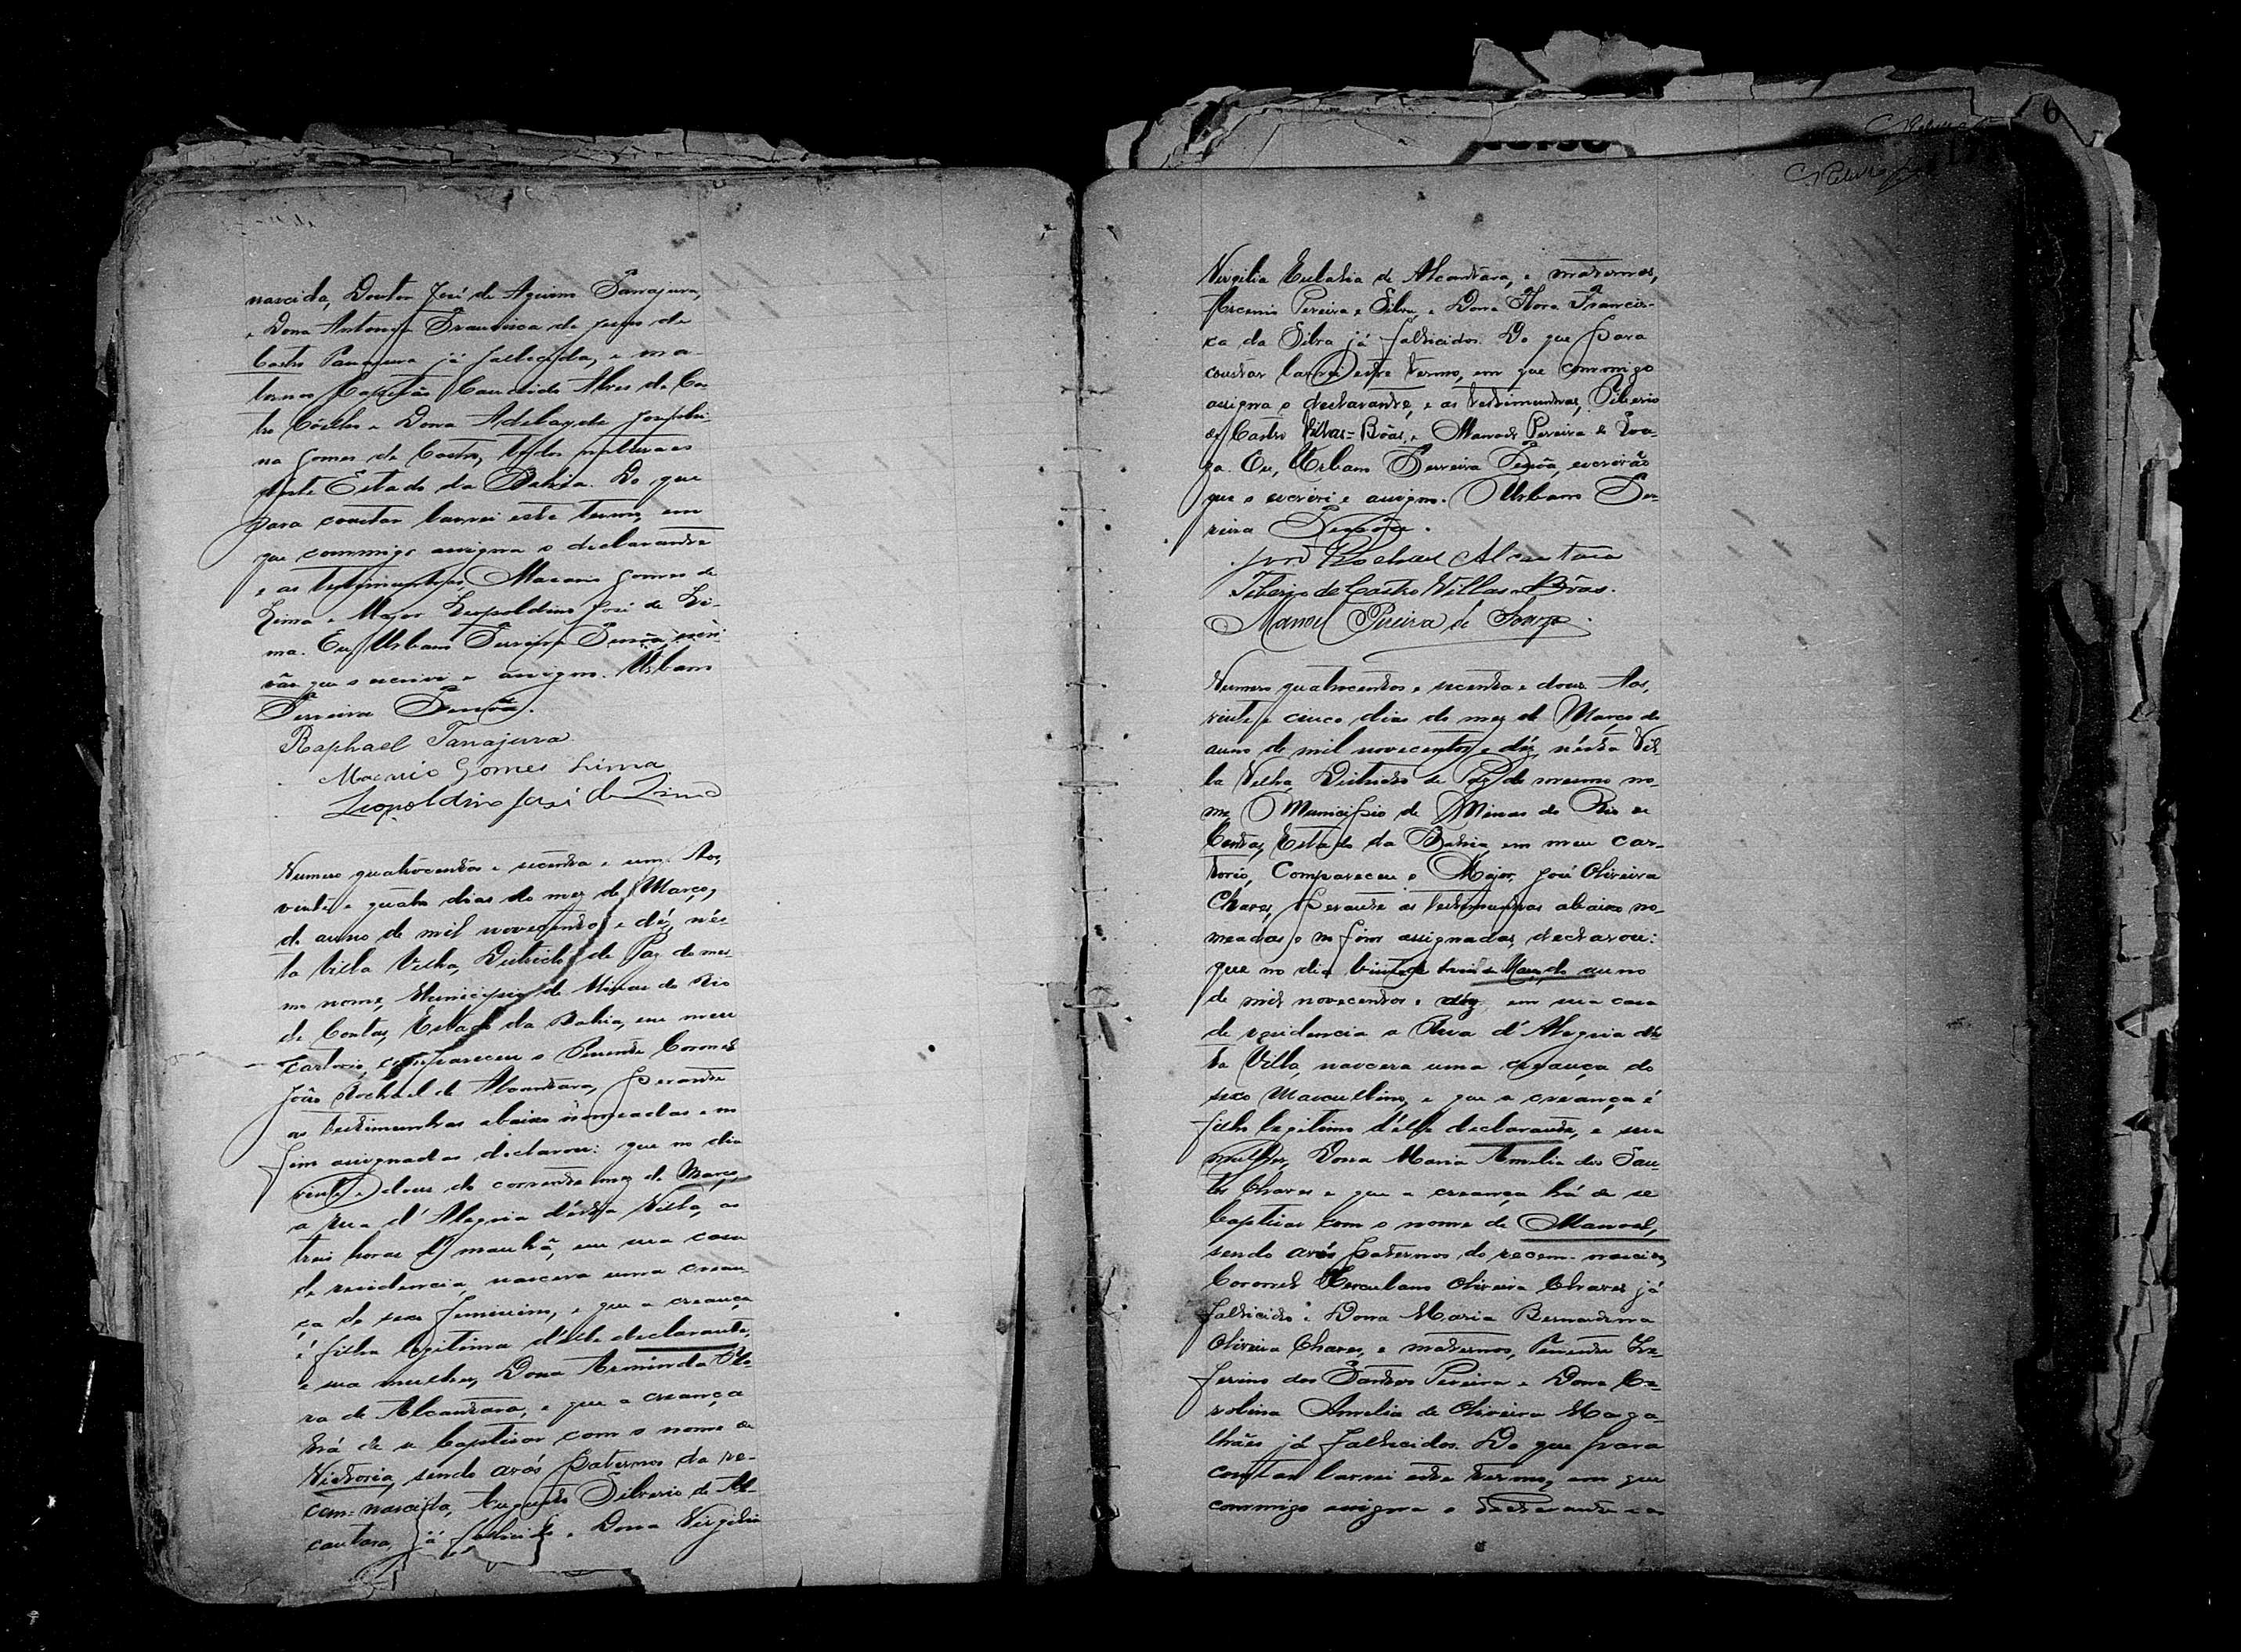 nascida, Doutor José de Aquino Tanajura,
e Dona Antonia Francisca de Jesus de
Castro Tanajura já fallecida, e ma-
ternos Capitão Candido Alves de Cas-
tro Coelho e Dona Adelayde Josephi-
na Gomes de Castro, todos naturaes
deste Estado da Bahia. Do que
para constar lavrei este termo, em
que commigo assigna o declarante
e as testimunhas, Macario Gomes de
Lima e Major Leopoldino José de Li-
ma. Eu, Urbano Ferreira Pessôa, escri-
vão que o escrivi e assigno. Urbano
Ferreira Pessôa.
Raphael Tanajura
Macario Gomes Lima
Leopoldino José de Lima
Numero quatrocentos e secenta e um. Aos,
vinte e quatro dias do mez de Março,
do anno de mil novecentos e déz, nés-
ta Villa Velha, Districto de Paz do mes-
mo nome, Municipio de Minas do Rio
de Contas, Estado da Bahia, em meu
cartorio, compareceu o Tenente Coronel
João Rochael de Alcantara, perante
as testimunhas abaixo nomeadas e no
fim assignadas declarou: que no dia
vinte e dous do corrente mez de Março,
a rua d'Alegria désta Villa, as
treis horas da manhã, em sua casa
de residencia, nascera uma crean-
ça do sexo feminino, e que a creança
é filha legitima d'elle declarante,
e sua mulher, Dona Arminda
de Alcantara, e que a creança
há de se baptisar com o nome de
Victoria, sendo avós paternos da re-
cem-nascida, Augusto Silverio de Al-
cantara, já fallecido e Dona Virgilia
Virgilia Eulalia de Alcantara, e maternos,
Arcenio Pereira e Silva, e Dona Flora Francis-
ca da Silva já fallicidos. Do que para
constar lavrei este termo, em que commigo
assigna o declarante, e as testimunhas, Tiberio
de Castro Villas-Bôas, e Manoel Pereira de Sou-
za. Eu, Urbano Ferreira Pessôa, escrivão
que o escrivi e assigno. Urbano Fer-
reira Pessôa.
João Rochael Alcantara
Tiberio de Castro Villas-Bôas.
Manoel Pereira de Souza.
Numero quatrocentos e secenta e dous. Aos,
vinte e cinco dias do mez de Março do
anno de mil novecentos e déz, nésta Vil-
la Velha, Districto de Paz do mesmo no-
me, Municipio de Minas do Rio de
Contas, Estado da Bahia, em meu car-
torio, Compareceu o Major, José Oliveira
Chaves, perante as testimunhas abaixo no-
meadas e no fim assignadas, declarou:
que no dia vinte e treis de Março do anno
de mil novecentos e déz, em sua casa
de residencia a Rua d'Alegria dés-
ta Villa, nascera uma creança do
sexo Masculino, e que a creança é
filho legitimo d'elle declarante, e sua
mulher, Dona Maria Amelia dos San-
tos Chaves e que a creança há de se
baptisar com o nome de Manoel,
sendo avós paternos do recem-nascido,
Coronel Herculano Oliveira Chaves já
fallicido e Dona Maria Bernardina
Oliveira Chaves, e maternos, Tenente Ze-
ferino dos Santos Pereira e Dona Ca-
rolina Amelia de Oliveira Maga-
lhães já fallicidos. Do que para
constar lavrei este termo, em que
commigo assigna o declarante e as